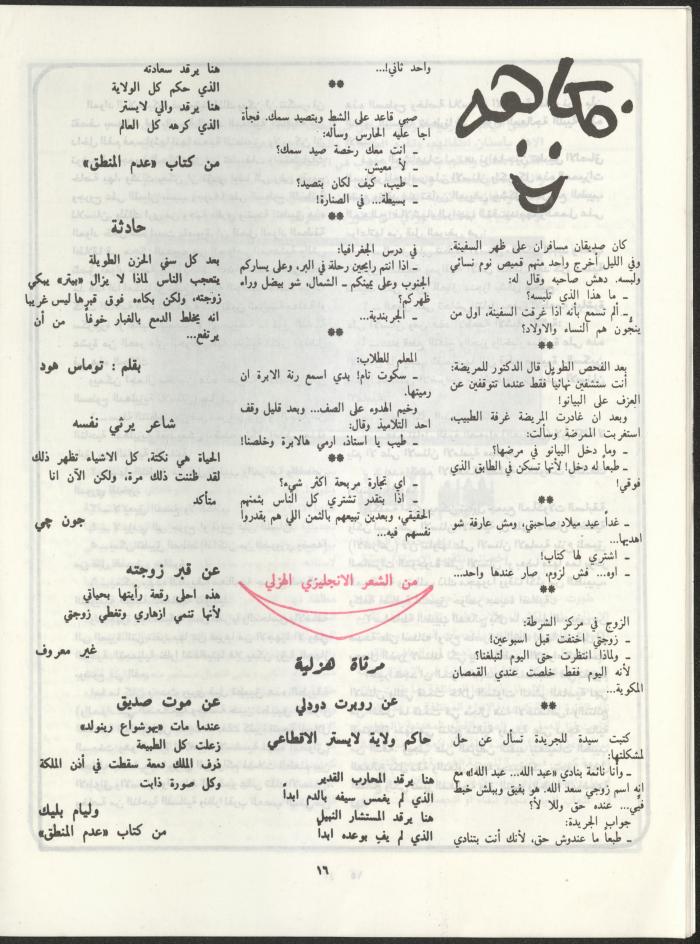 فكاهه
كان صديقان مسافران على ظهر السفينة.
وفي الليل أخرج واحد منهم قميص نوم نسائي
ولبسه. دهش صاحبه وقال له:
ـ ما هذا الذي تلبسه؟
ـ ألم تسمع بأنه اذا غرقت السفينة، اول من
ينجّون هم النساء والاولاد؟
**
بعد الفحص الطويل قال الدكتور للمريضة:
أنت ستشفين نهائياً فقط عندما تتوقفين عن
العزف على البيانو!
وبعد ان غادرت المريضة غرفة الطبيب،
استغربت الممرضة وسألت:
ـ وما دخل البيانو في مرضها؟
ـ طبعاً له دخل! لأنها تسكن في الطابق الذي
فوقي!
**
ـ غداً عيد ميلاد صاحبتي، ومش عارفة شو
اهديها...
ـ اشتري لها كتاب!
ـ اوه... فش لزوم، صار عندها واحد...
**
الزوج في مركز الشرطة:
ـ زوجتي اختفت قبل اسبوعين!
ـ ولماذا انتظرت حتى اليوم لتبلغنا؟
لأنه اليوم فقط خلصت عندي القمصان
المكوية...
**
كتبت سيدة للجريدة تسأل عن حل
لمشكلتها:
ـ وأنا نائمة بنادي «عبد الله... عبد الله!» مع
إنه اسم زوجي سعد الله. هو بفيق وببلش خبط
فيّي... عنده حق وللا لأ؟
جواب الجريدة:
ـ طبعاً ما عندوش حق، لأنك أنت بتنادي
واحد ثاني!...
**
صبي قاعد على الشط وبتصيد سمك. فجأة
اجا عليه الحارس وسأله:
ـ انت معك رخصة صيد سمك؟
ـ لا معيش.
ـ طيب، كيف لكان بتصيد؟
ـ بسيطة... في الصنارة!
**
في درس الجغرافيا:
ـ اذا انتم رايحين رحلة في البر، وعلى يساركم
الجنوب وعلى يمينكم ـ الشمال، شو بيضل وراء
ظهركم؟
ـ الجربندية...
**
المعلم للطلاب:
ـ سكوت تام! بدي اسمع رنة الابرة ان
رميتها.
وخيم الهدوء على الصف... وبعد قليل وقف
احد التلاميذ وقال:
ـ طيب يا استاذ، ارمي هالابرة وخلصنا!
**
ـ اي تجارة مربحة اكثر شيء؟
ـ اذا بتقدر تشتري كل الناس بثمنهم
الحقيقي، وبعدين تبيعهم بالثمن اللي هم بقدروا
نفسهم فيه...
من الشعر الانجليزي الهزلي
مرثاة هزلية
عن روبرت دودلي
حاكم ولاية لايستر الاقطاعي
هنا يرقد المحارب القدير
الذي لم يغمس سيفه بالدم ابداً
هنا يرقد المستشار النبيل
الذي لم يف بوعده ابداً
هنا يرقد سعادته
الذي حكم كل الولاية
هنا يرقد والي لايستر
الذي كرهه كل العالم
من كتاب «عدم المنطق»
حادثة
بعد كل سني الحزن الطويلة
يتعجب الناس لماذا لا يزال «بيتر» يبكي
زوجته، ولكن بكاءه فوق قبرها ليس غريبا
انه يخلط الدمع بالغبار خوفاً من أن
يرتفع...
بقلم : توماس هود
شاعر يرثي نفسه
الحياة هي نكتة، كل الاشياء تظهر ذلك
لقد ظننت ذلك مرة، ولكن الآن انا
متأكد
جون چي
عن قبر زوجته
هذه احلى رقعة رأيتها بحياتي
لأنها تنمي ازهاري وتغطي زوجتي
غير معروف
عن موت صديق
عندما مات «يهوشواع رينولد»
زعلت كل الطبيعة
ذرف الملك دمعة سقطت في أذن الملكة
وكل صورة ذابت
وليام بليك
من كتاب «عدم المنطق»
١٦